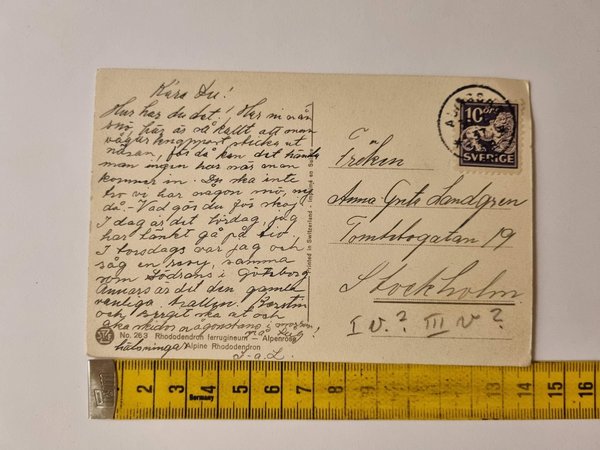 Kära Du!
Hur har du det! Har ni nån
snö, här är så kallt att man
vågar knappast sticka ut
näsan, för då kan det hända
man ingen har när man
kommer in. Du ska inte
tro vi har någon snö, nej
då. - Vad gör du för skoj
I dag är det lördag, jag
har tänkt gå på bio.
I torsdags var jag och
såg en revy, samma
som Södrans i Göteborg
Annars är det den gamla
vanliga trallen. Kerstin
och Birgit ska ut och
åka skidor någonstans i morgon
må så gott!
hälsningar
I-a L.
No. 263 Rhododendron ferrugineum — Alpenrose
Alpine Rhododendron
Printed in Switzerland - Imprimé en
10 ÖRE
SVERIGE
Fröken
Anna Greta Landgren
Tomtebogatan 19
Stockholm
I v.? III v?
2 3 4 Germany 5 6 7 8 9 10 11 12 13 14 15 16